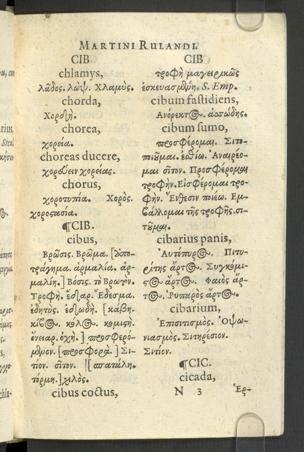 MARTINI RULANDI
CIB
chlamys,
λᾶδος. λώψ. Χλαμύς.
chorda,
Χορδή.
chorea,
χορεία.
choreas ducere,
χορεύειν χορείας.
chorus,
χοροτυπία. Χορός.
χοροστασία.
¶CIB.
cibus,
Βρῶσις. Βρῶμα.
τράγημα. ἁρμαλία.
μαλίη.] Βόσις. τὸ
Τροφή. Ἔδεσμα.
ἐδητύς. ἐσθωδή. [κάβη.
κομιδή.
[προσφορά.] Σι-
τίον. σῖτον.
χιλός.
cibus coctus,
CIB
τροφὴ μαγειρικῶς
ἐσκευασμένη. S. Emp.
cibum fastidiens,
Ἀνόρεκτος. ἀποσώδης.
cibum sumo,
προσφέρομαι. Σιτ-
ἐσθίω. Ἀναιρέο-
μαι σῖτον. Προσφέρομαι
τροφήν. Εἰσφέρομαι τρο-
φήν. Ἔνθεσιν ποιέω. Ἐμ-
βάλλομαι τῆς τροφῆς. σι-
cibarius panis,
Αὐτόπυρος. Πιτυ-
ρίτης ἄρτος. Συγκομι-
στὸς ἄρτος. Φαιὸς ἄρ-
τος. Ῥυπαρὸς ἄρτος.
cibarium,
Ἐπισιτισμός. Ὀψω-
νιασμός. Σιτηρέσιον.
Σιτίον.
¶CIC.
cicada,
N 3 Ἐρ-